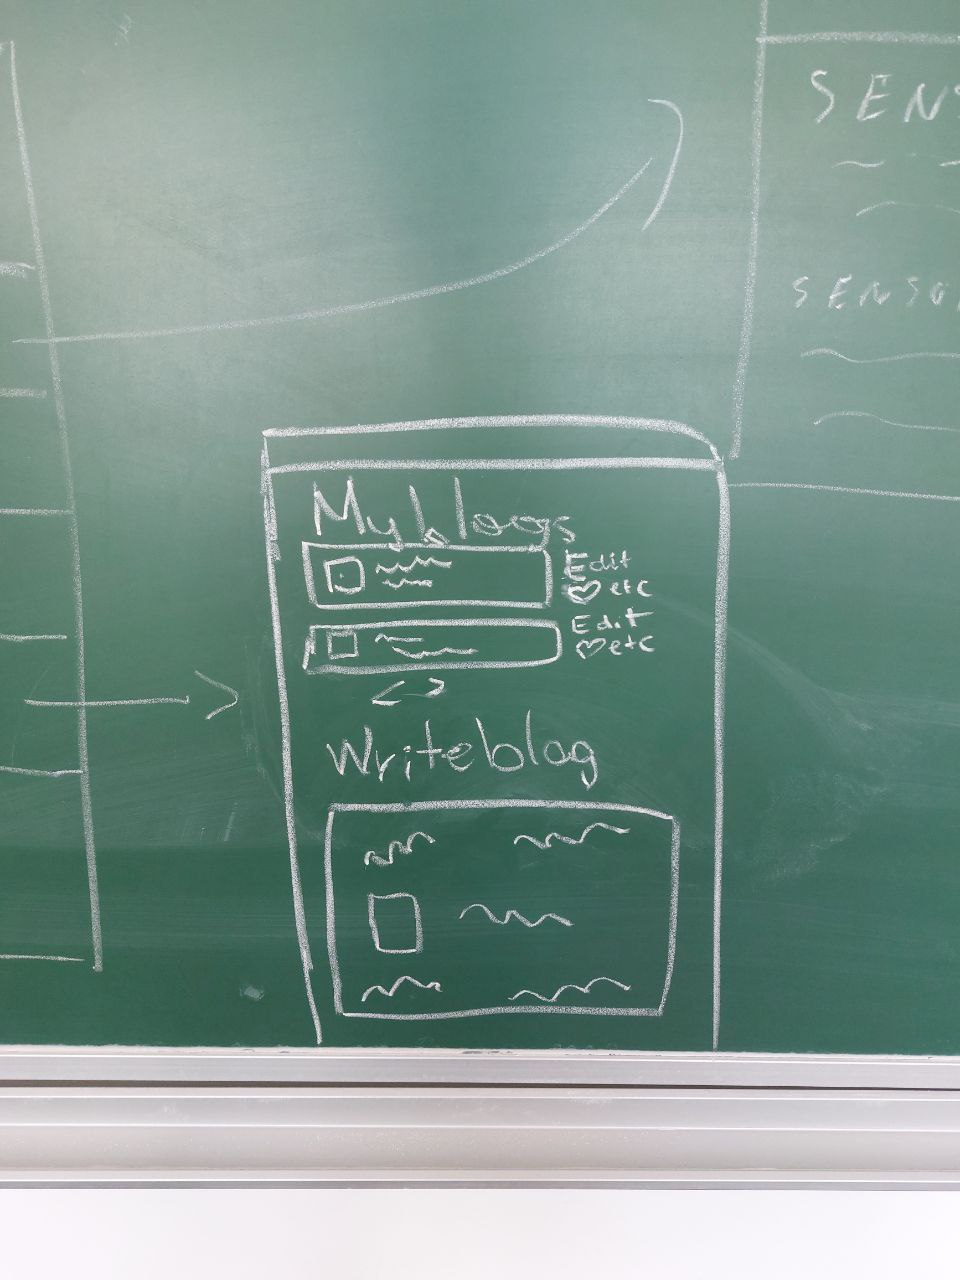 SENS
SENSO
My blogs
Edit
♡ etc
Edit
♡ etc
< >
Write blog